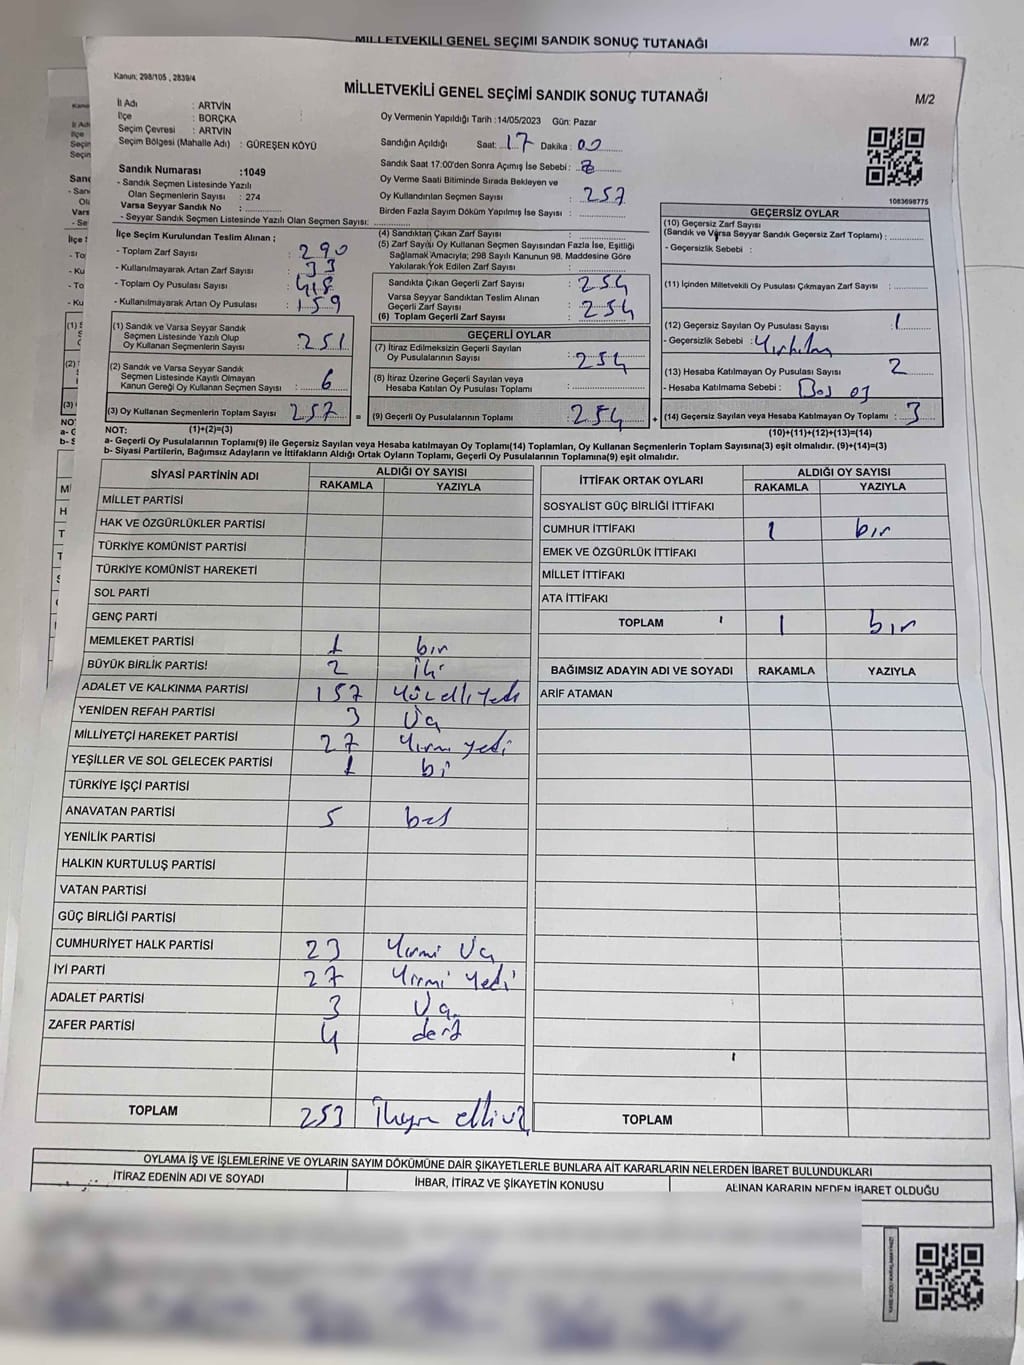 MİLLETVEKİLİ GENEL SEÇİMİ SANDIK SONUÇ TUTANAĞI
M/2
Kanun; 298/105 , 2839/4
MİLLETVEKİLİ GENEL SEÇİMİ SANDIK SONUÇ TUTANAĞI
M/2
İl Adı : ARTVİN
İlçe : BORÇKA
Seçim Çevresi : ARTVİN
Seçim Bölgesi (Mahalle Adı) : GÜREŞEN KÖYÜ
Sandık Numarası :1049
- Sandık Seçmen Listesinde Yazılı
Olan Seçmenlerin Sayısı : 274
Varsa Seyyar Sandık No :
- Seyyar Sandık Seçmen Listesinde Yazılı Olan Seçmen Sayısı:
Oy Vermenin Yapıldığı Tarih :14/05/2023 Gün: Pazar
Sandığın Açıldığı Saat: 17 Dakika : 00
Sandık Saat 17:00'den Sonra Açımış İse Sebebi :
Oy Verme Saati Bitiminde Sırada Bekleyen ve
Oy Kullandırılan Seçmen Sayısı : 257
Birden Fazla Sayım Döküm Yapılmış İse Sayısı :
1083698775
İlçe Seçim Kurulundan Teslim Alınan ;
- Toplam Zarf Sayısı : 290
- Kullanılmayarak Artan Zarf Sayısı : 33
- Toplam Oy Pusulası Sayısı : 418
- Kullanılmayarak Artan Oy Pusulası : 159
(1) Sandık ve Varsa Seyyar Sandık
Seçmen Listesinde Yazılı Olup
Oy Kullanan Seçmenlerin Sayısı : 251
(2) Sandık ve Varsa Seyyar Sandık
Seçmen Listesinde Kayıtlı Olmayan
Kanun Gereği Oy Kullanan Seçmen Sayısı : 6
(3) Oy Kullanan Seçmenlerin Toplam Sayısı : 257 =
(1)+(2)=(3)
(4) Sandıktan Çıkan Zarf Sayısı :
(5) Zarf Sayısı Oy Kullanan Seçmen Sayısından Fazla İse, Eşitliği
Sağlamak Amacıyla; 298 Sayılı Kanunun 98. Maddesine Göre
Yakılarak Yok Edilen Zarf Sayısı :
Sandıkta Çıkan Geçerli Zarf Sayısı : 254
Varsa Seyyar Sandıktan Teslim Alınan
Geçerli Zarf Sayısı : 254
(6) Toplam Geçerli Zarf Sayısı
GEÇERLİ OYLAR
(7) İtiraz Edilmeksizin Geçerli Sayılan
Oy Pusulalarının Sayısı : 254
(8) İtiraz Üzerine Geçerli Sayılan veya
Hesaba Katılan Oy Pusulası Toplamı :
(9) Geçerli Oy Pusulalarının Toplamı : 254 +
GEÇERSİZ OYLAR
(10) Geçersiz Zarf Sayısı
(Sandık ve Varsa Seyyar Sandık Geçersiz Zarf Toplamı) :
- Geçersizlik Sebebi :
(11) İçinden Milletvekili Oy Pusulası Çıkmayan Zarf Sayısı :
(12) Geçersiz Sayılan Oy Pusulası Sayısı : 1
- Geçersizlik Sebebi :
(13) Hesaba Katılmayan Oy Pusulası Sayısı : 2
- Hesaba Katılmama Sebebi : Boş oy
(14) Geçersiz Sayılan veya Hesaba Katılmayan Oy Toplamı : 3
(10)+(11)+(12)+(13)=(14)
NOT:
a- Geçerli Oy Pusulalarının Toplamı(9) ile Geçersiz Sayılan veya Hesaba katılmayan Oy Toplamı(14) Toplamları, Oy Kullanan Seçmenlerin Toplam Sayısına(3) eşit olmalıdır. (9)+(14)=(3)
b- Siyasi Partilerin, Bağımsız Adayların ve İttifakların Aldığı Ortak Oyların Toplamı, Geçerli Oy Pusulalarının Toplamına(9) eşit olmalıdır.
SİYASİ PARTİNİN ADI
ALDIĞI OY SAYISI
RAKAMLA YAZIYLA
MİLLET PARTİSİ
HAK VE ÖZGÜRLÜKLER PARTİSİ
TÜRKİYE KOMÜNİST PARTİSİ
TÜRKİYE KOMÜNİST HAREKETİ
SOL PARTİ
GENÇ PARTİ
MEMLEKET PARTİSİ 1 bir
BÜYÜK BİRLİK PARTİSİ 2 iki
ADALET VE KALKINMA PARTİSİ 157 Yüz elli yedi
YENİDEN REFAH PARTİSİ 3 Üç
MİLLİYETÇİ HAREKET PARTİSİ 27 Yirmi yedi
YEŞİLLER VE SOL GELECEK PARTİSİ 1 bi
TÜRKİYE İŞÇİ PARTİSİ
ANAVATAN PARTİSİ 5 beş
YENİLİK PARTİSİ
HALKIN KURTULUŞ PARTİSİ
VATAN PARTİSİ
GÜÇ BİRLİĞİ PARTİSİ
CUMHURİYET HALK PARTİSİ 23 Yirmi Üç
İYİ PARTİ 27 Yirmi Yedi
ADALET PARTİSİ 3 Üç
ZAFER PARTİSİ 4 dört
TOPLAM 253
İTTİFAK ORTAK OYLARI
ALDIĞI OY SAYISI
RAKAMLA YAZIYLA
SOSYALİST GÜÇ BİRLİĞİ İTTİFAKI
CUMHUR İTTİFAKI 1 bir
EMEK VE ÖZGÜRLÜK İTTİFAKI
MİLLET İTTİFAKI
ATA İTTİFAKI
TOPLAM 1 bir
BAĞIMSIZ ADAYIN ADI VE SOYADI RAKAMLA YAZIYLA
ARİF ATAMAN
TOPLAM
OYLAMA İŞ VE İŞLEMLERİNE VE OYLARIN SAYIM DÖKÜMÜNE DAİR ŞİKAYETLERLE BUNLARA AİT KARARLARIN NELERDEN İBARET BULUNDUKLARI
İTİRAZ EDENİN ADI VE SOYADI
İHBAR, İTİRAZ VE ŞİKAYETİN KONUSU
ALINAN KARARIN NEDEN İBARET OLDUĞU